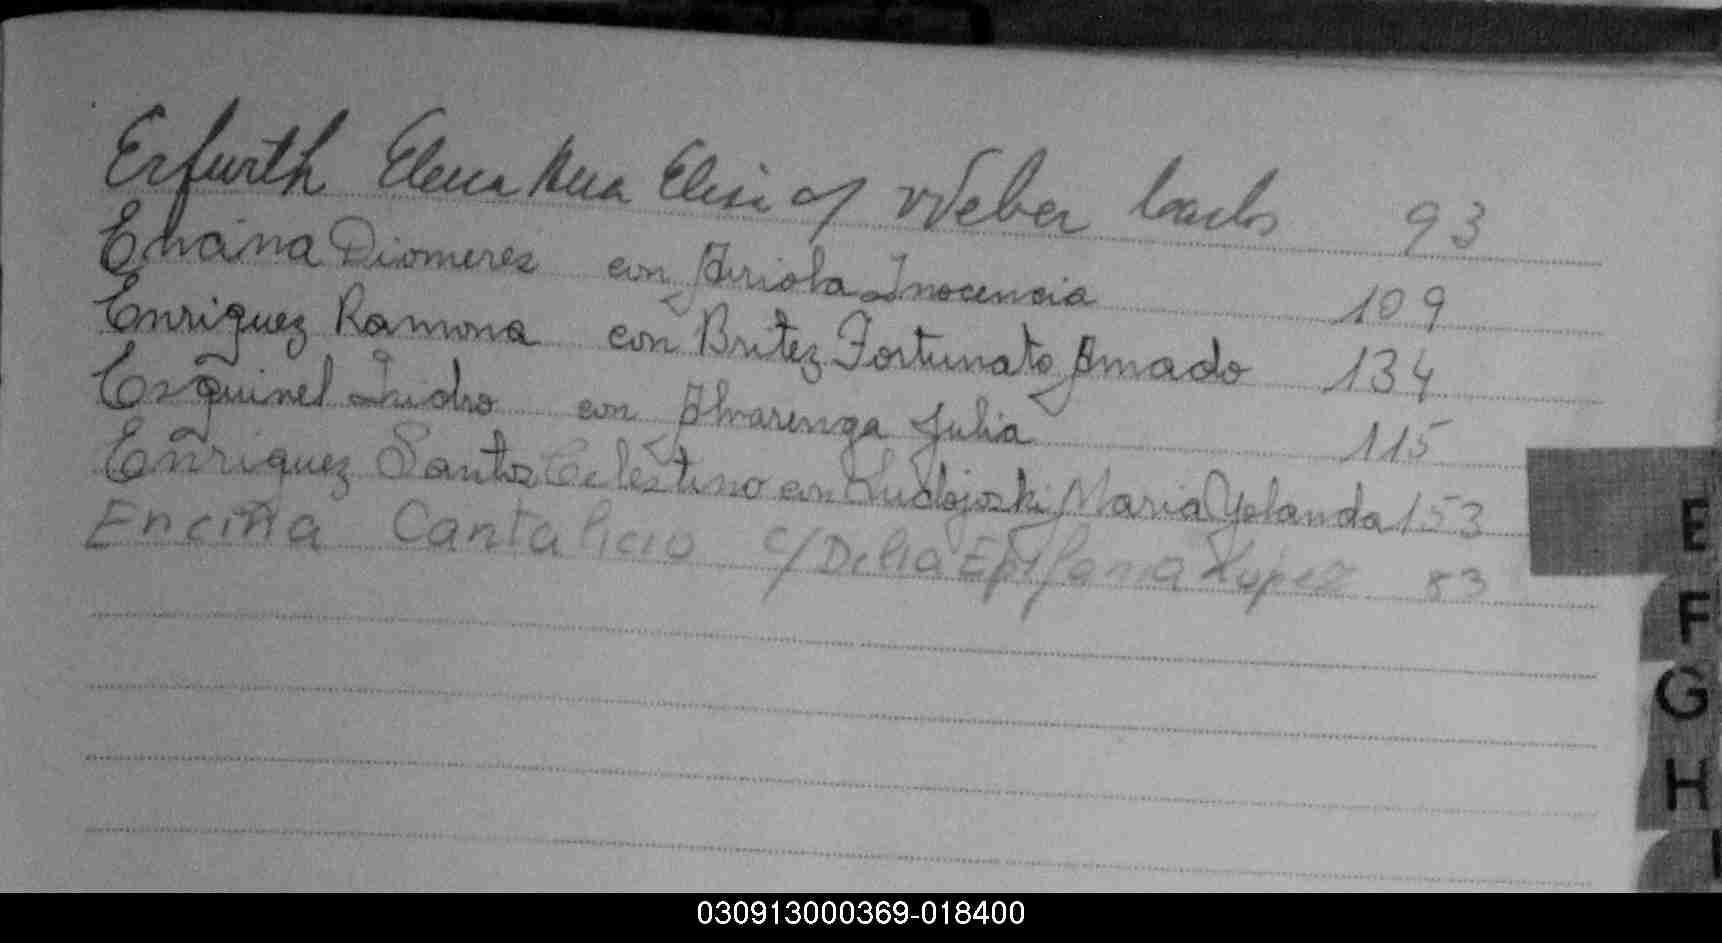 Erfurth Elena Ana Elisa c/ Weber Carlos 93
Encina Diomeres con Arriola Inocencia 109
Enriquez Ramona con Britez Fortunato Amado 134
Esquinel Isidro con Alvarenga Julia 115
Enriquez Santos Celestino con Maria Yolanda 153
Enciña Cantalicio c/ Delia Epifania López 83
E
F
G
H
I
030913000369-018400